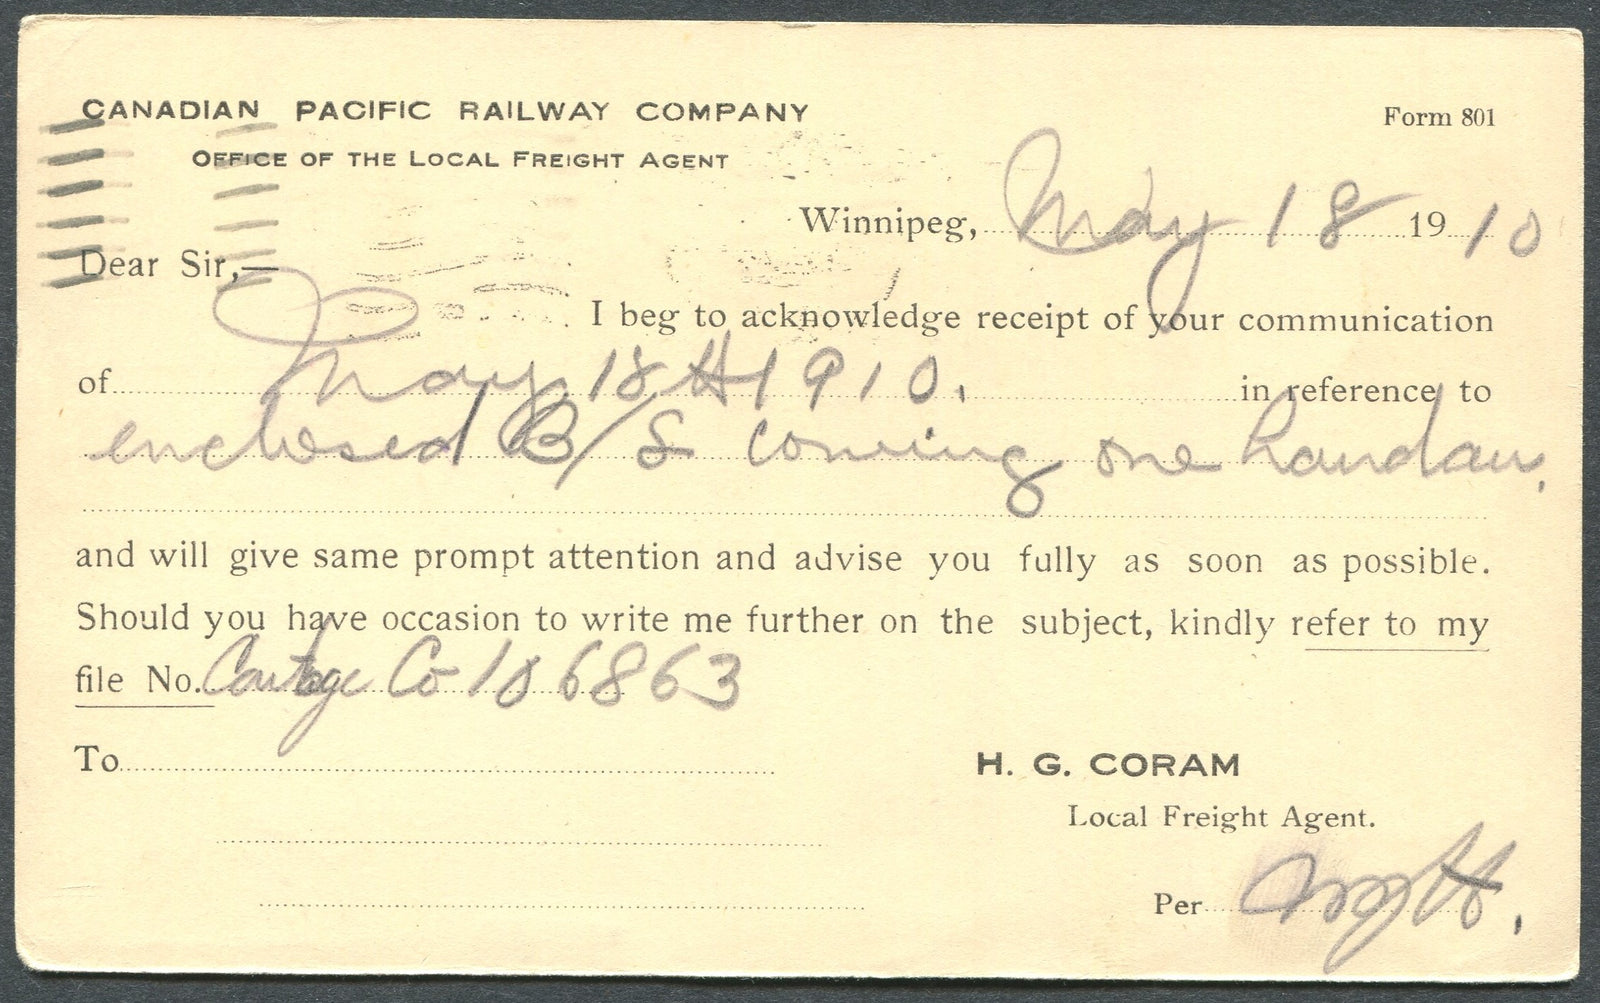 CANADIAN PACIFIC RAILWAY COMPANY
Form 801
OFFICE OF THE LOCAL FREIGHT AGENT
Winnipeg, May 18 1910
Dear Sir,—
I beg to acknowledge receipt of your communication
of May 18th 1910. in reference to
enclosed B/L covering one
and will give same prompt attention and advise you fully as soon as possible.
Should you have occasion to write me further on the subject, kindly refer to my
file No. Cartage Co 106863
To
H. G. CORAM
Local Freight Agent.
Per